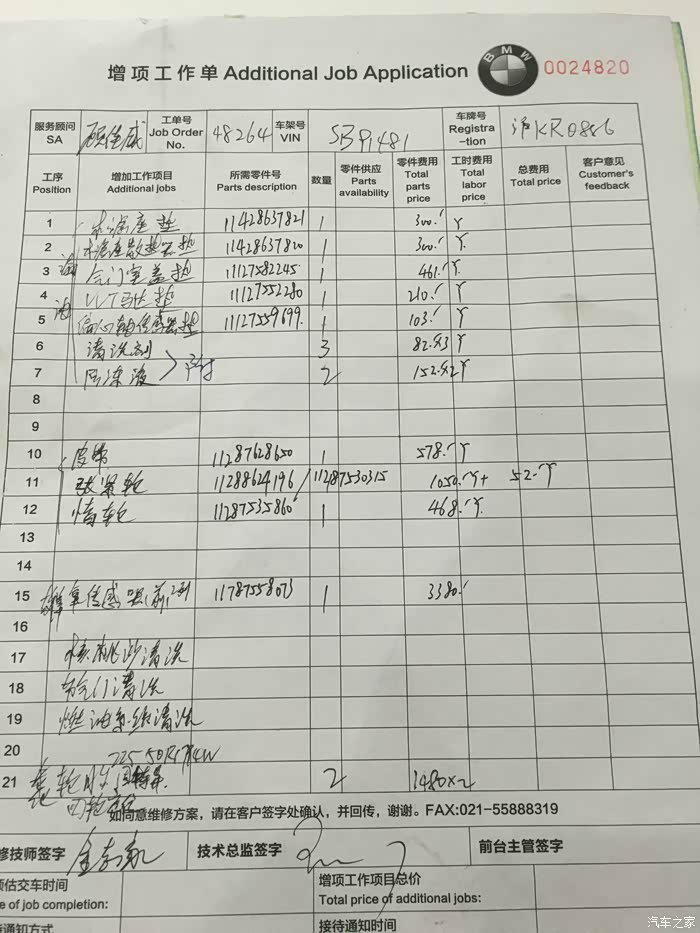 增项工作单 Additional Job Application BMW 0024820
服务顾问 SA 工单号 Job Order No. 48264 车架号 VIN SB91481 车牌号 Registra-tion 沪KR0886
工序 Position 增加工作项目 Additional jobs 所需零件号 Parts description 数量 零件供应 Parts availability 零件费用 Total parts price 工时费用 Total labor price 总费用 Total price 客户意见 Customer's feedback
1 座垫 11428637821 1 300.- Y
2 11428637820 1 300.- Y
3 气门室盖垫 11127582245 1 461.- Y
4 VVT马达垫 11127552280 1 210.- Y
5 偏心轴传感器垫 11127559699 1 103.- Y
6 清洗剂 3 82.-×3 Y
7 防冻液 2 152.-×2 Y
8
9
10 皮带 11287628650 1 578.- Y
11 涨紧轮 11288624196 / 11287530315 1050.- Y+ 52.- Y
12 惰轮 11287535860 1 468.- Y
13
14
15 氧传感器(前) 11787558073 1 3380.-
16
17 清洗
18 气门清洗
19 燃油系统清洗
20
225 50R17 94W
21 2 1480×2
四轮定位
如同意维修方案，请在客户签字处确认，并回传，谢谢。FAX:021-55888319
修技师签字 技术总监签字 前台主管签字
预估交车时间 增项工作项目总价
e of job completion: Total price of additional jobs:
待通知方式 接待通知时间
汽车之家